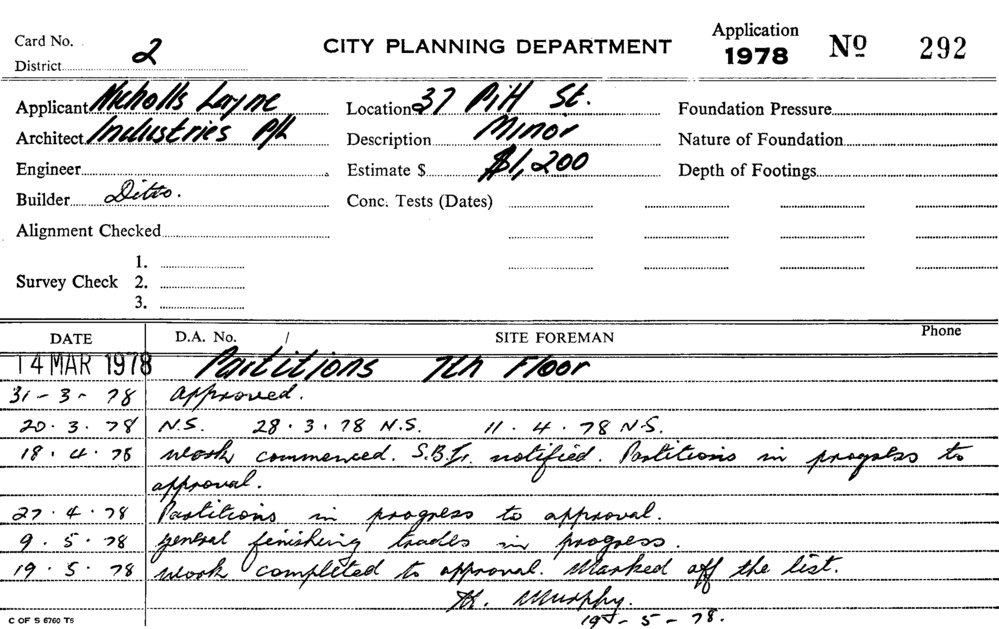 Card No.
District 2
CITY PLANNING DEPARTMENT
Application
1978 No 292
Applicant Nicholls Layne Location 37 Pitt St. Foundation Pressure
Architect Industries P/L Description Minor Nature of Foundation
Engineer Estimate $ $1,200 Depth of Footings
Builder Ditto. Conc. Tests (Dates)
Alignment Checked
1.
Survey Check 2.
3.
DATE D.A. No. / SITE FOREMAN Phone
14 MAR 1978 Partitions 7th Floor
31-3-78 approved.
20.3.78 N.S. 28.3.78 N.S. 11.4.78 N.S.
18.4.78 work commenced. notified. Partitions in progress to
approval.
27.4.78 Partitions in progress to approval.
9.5.78 general finishing trades in progress.
19.5.78 work completed to approval. Marked off the list.
Murphy.
19-5-78.
C OF S 6760 T5